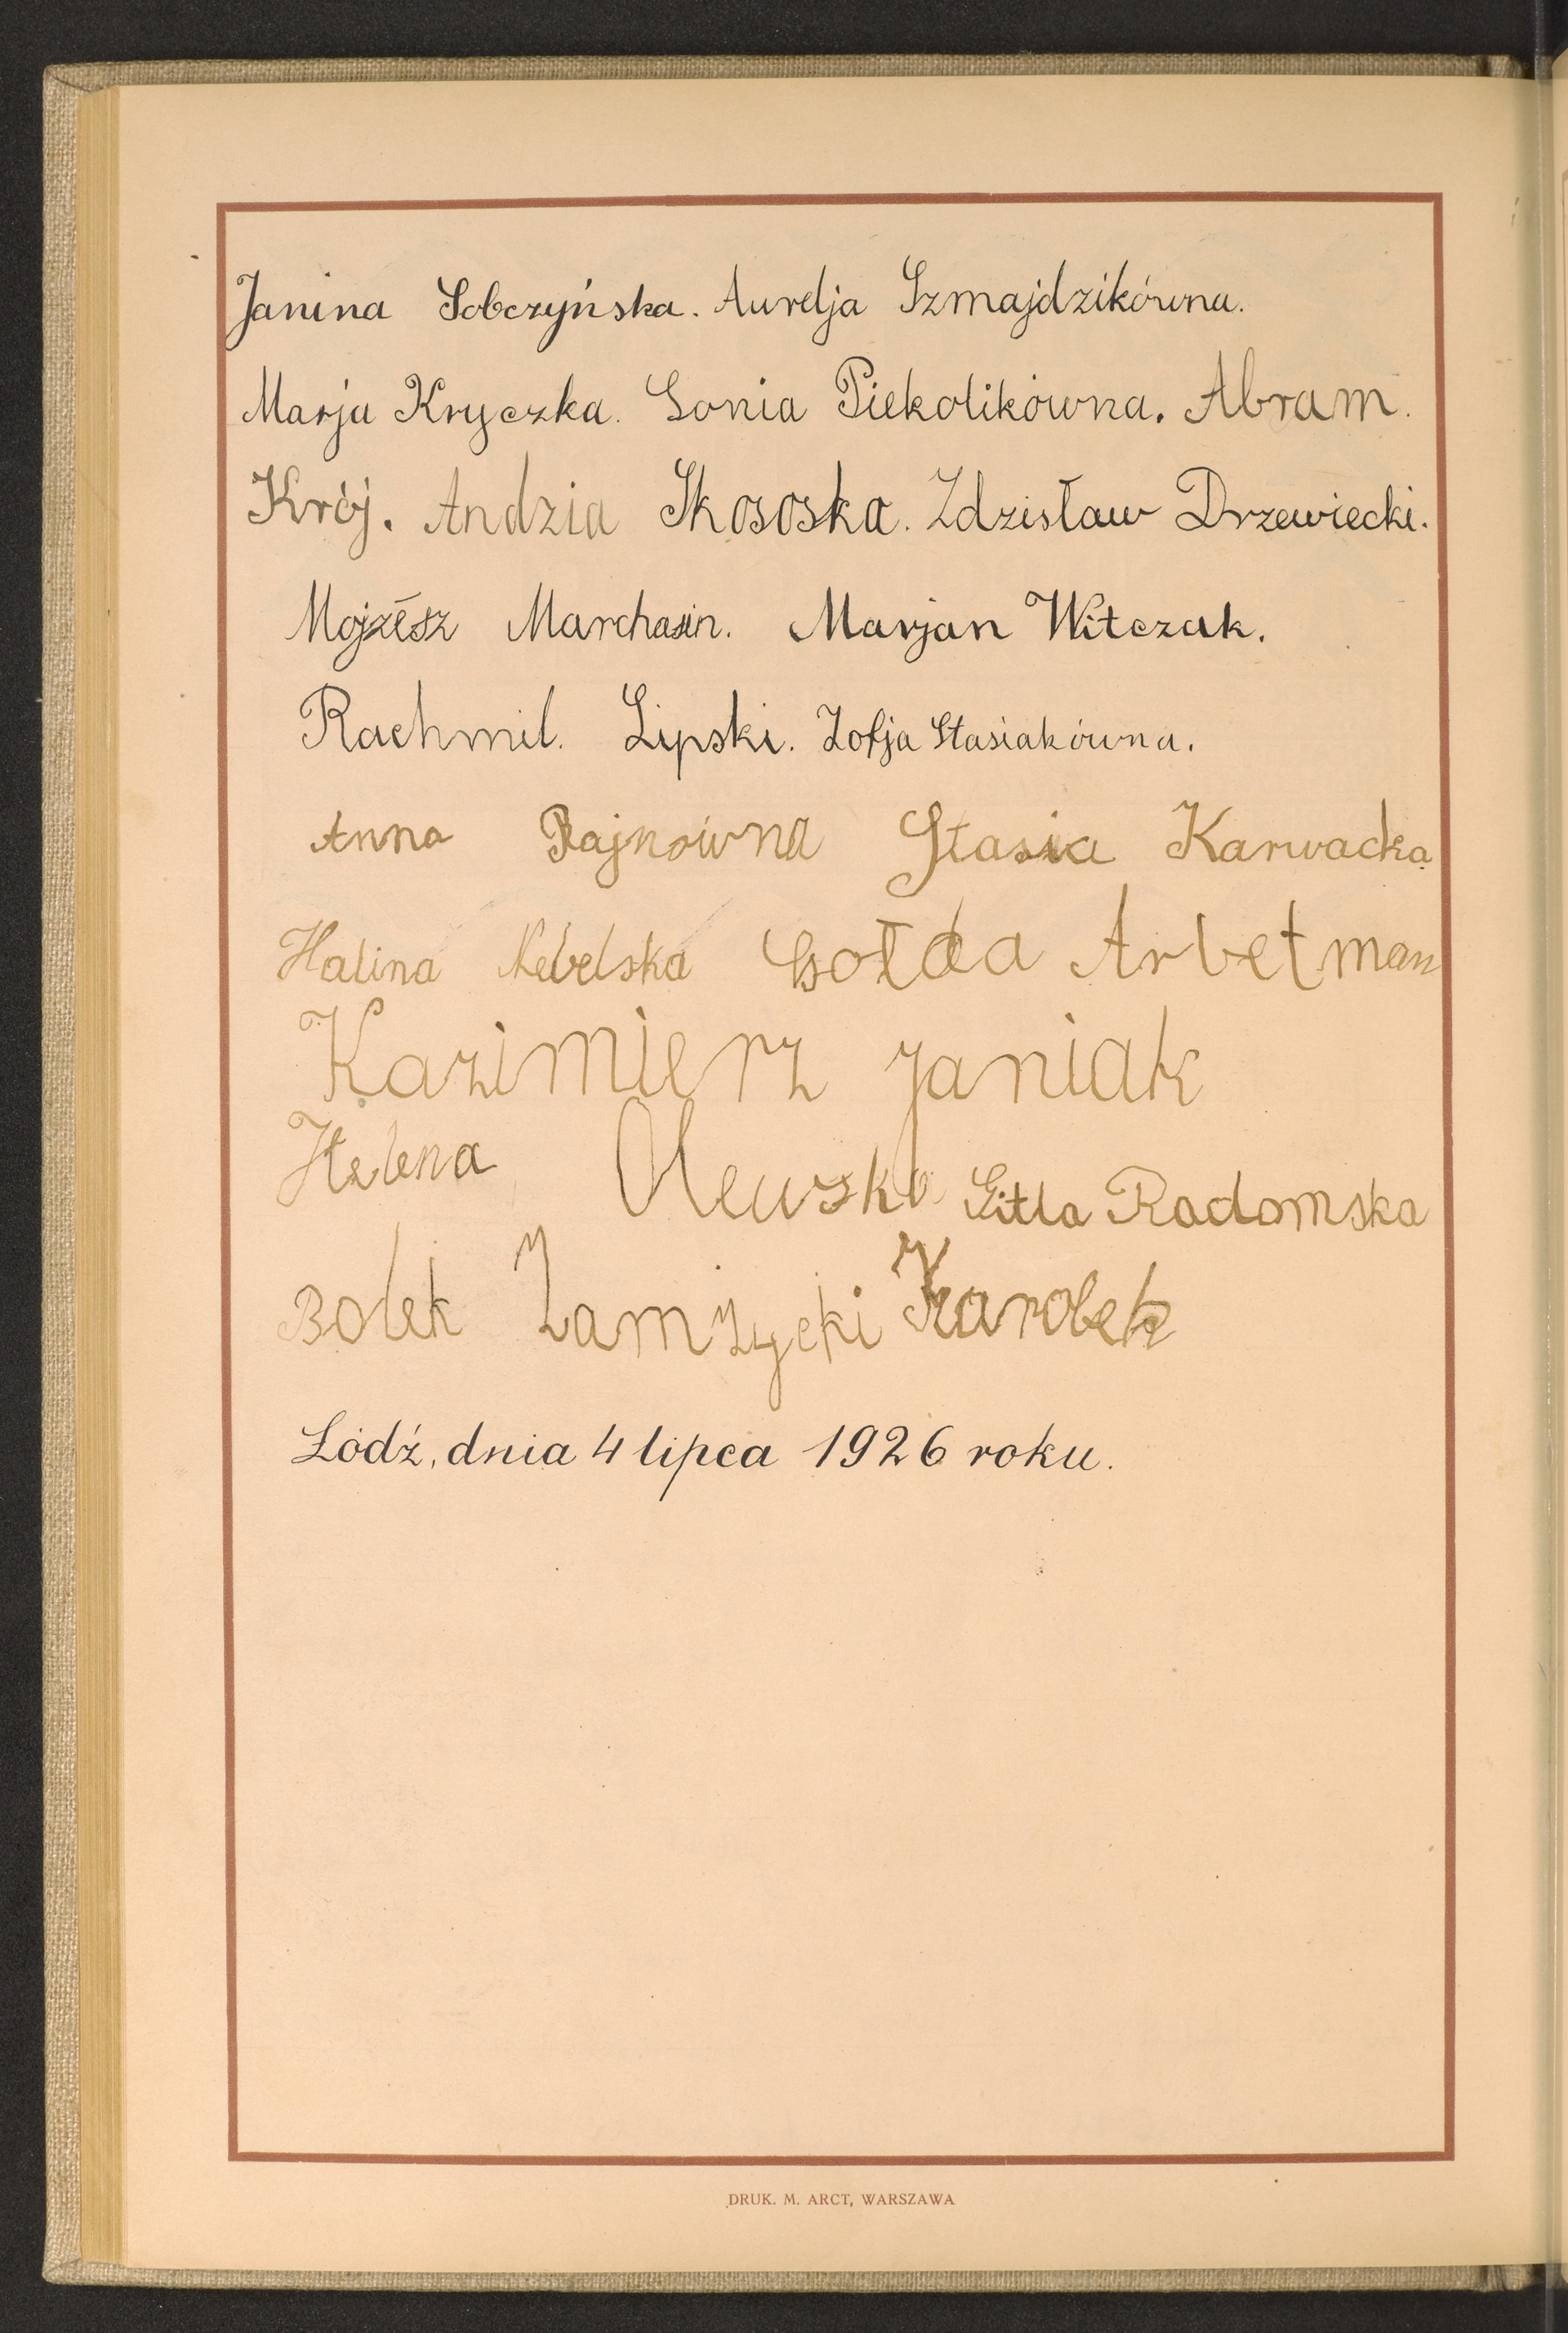 Janina Sobczyńska. Aurelja Szmajdzikówna.
Marja Kryczka. Sonia Piekolikówna. Abram.
Krój. Andzia Skososka. Zdzisław Drzewiecki.
Mojżesz Marchasin. Marjan Witczak.
Rachmil. Lipski. Zofja Stasiakówna.
Anna Rajnówna Stasia Karwacka
Halina Nebelska Gołda Arbetman
Kazimierz Janiak
Helena Gitla Radomska
Bolek Zamżycki Karolek
Łódź, dnia 4 lipca 1926 roku.
DRUK. M. ARCT, WARSZAWA